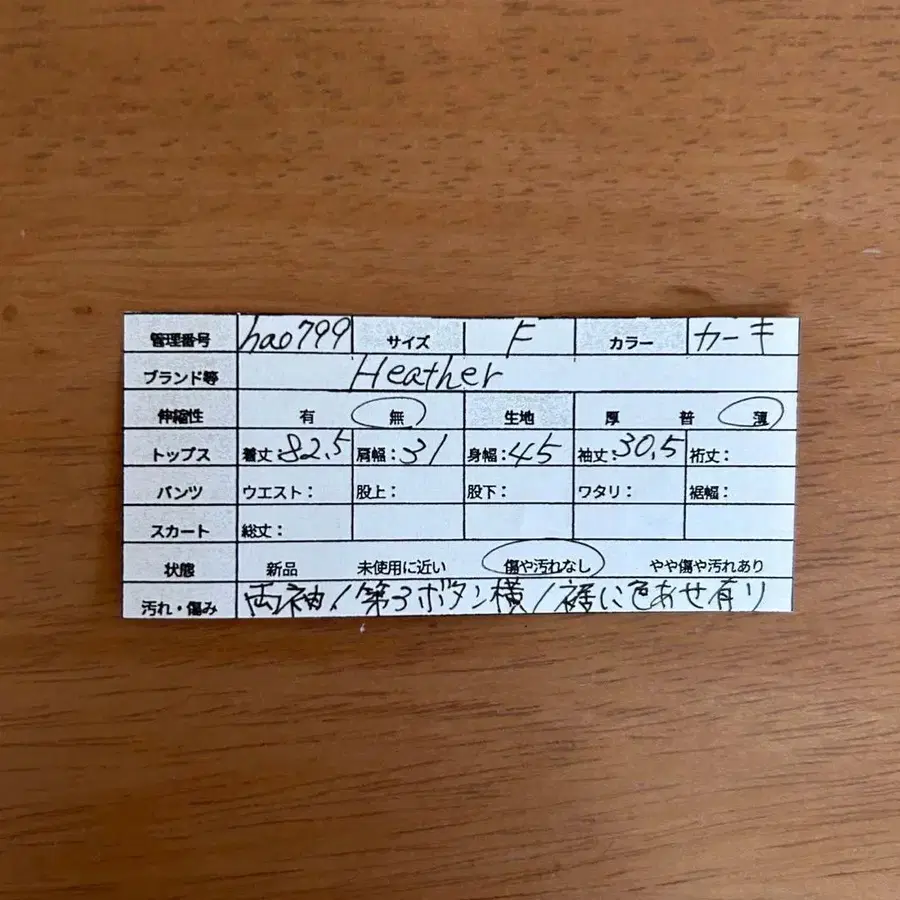 管理番号 hao799 サイズ F カラー カーキ
ブランド等 Heather
伸縮性 有 無 生地 厚 普 薄
トップス 着丈:82.5 肩幅:31 身幅:45 袖丈:30.5 裄丈:
パンツ ウエスト: 股上: 股下: ワタリ: 裾幅:
スカート 総丈:
状態 新品 未使用に近い 傷や汚れなし やや傷や汚れあり
汚れ・傷み 両袖/第3ボタン横/裾に色あせ有り